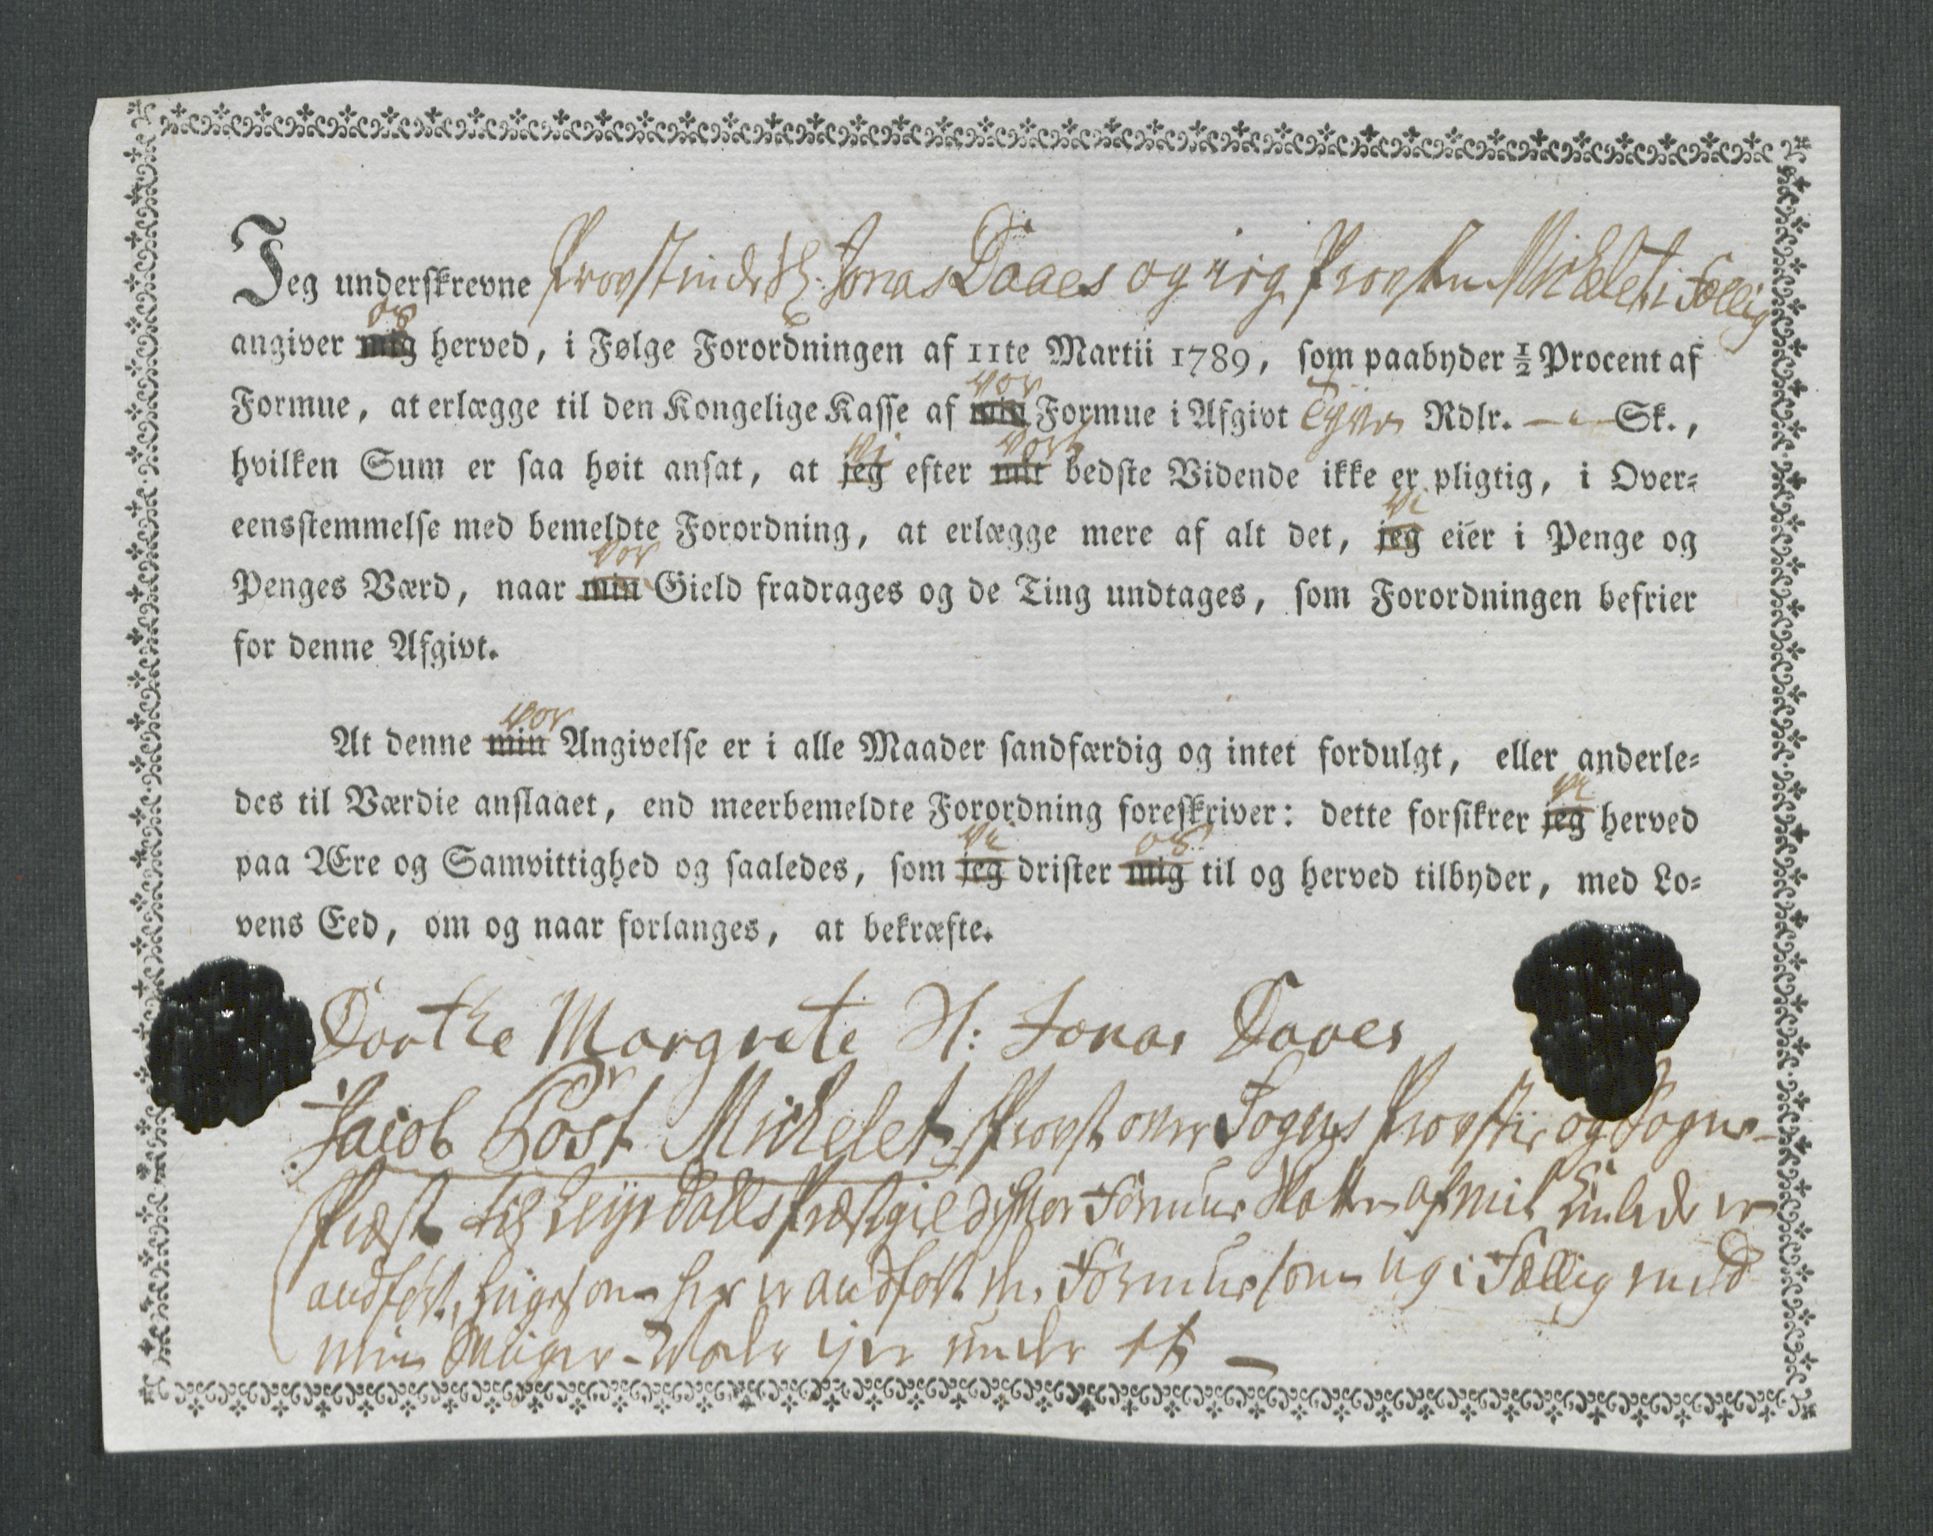 Jeg underskrevne Provstinde Sl. Jonas Daaes og ieg Provsten Michelet i Fællig
os
angiver mig herved, i Følge Forordningen af 11te Martii 1789, som paabyder ½ Procent af
vor
Formue, at erlægge til den Kongelige Kasse af min Formue i Afgivt Tyve Rdlr. — " — Sk.,
vi vort
hvilken Sum er saa høit ansat, at jeg efter mit bedste Vidende ikke er pligtig, i Over-
vi
eensstemmelse med bemeldte Forordning, at erlægge mere af alt det, jeg eier i Penge og
vor
Penges Værd, naar min Gield fradrages og de Ting undtages, som Forordningen befrier
for denne Afgivt.
vor
At denne min Angivelse er i alle Maader sandfærdig og intet fordulgt, eller anderle-
vi
des til Værdie anslaaet, end meerbemeldte Forordning foreskriver: dette forsikrer jeg herved
vi os
paa Ære og Samvittighed og saaledes, som jeg drister mig til og herved tilbyder, med Lo-
vens Eed, om og naar forlanges, at bekræfte.
Dorthe Margrete Sl: Jonas Daaes
Jacob Post Michelet, Provst over Sogns Provstie og Sogne-
Præst til Leyrdalls Præstegield hvor Formue Skatten af mit er
andført, som her er andført den Formue som ieg i Fællig med
min Svigermoder eier under et —